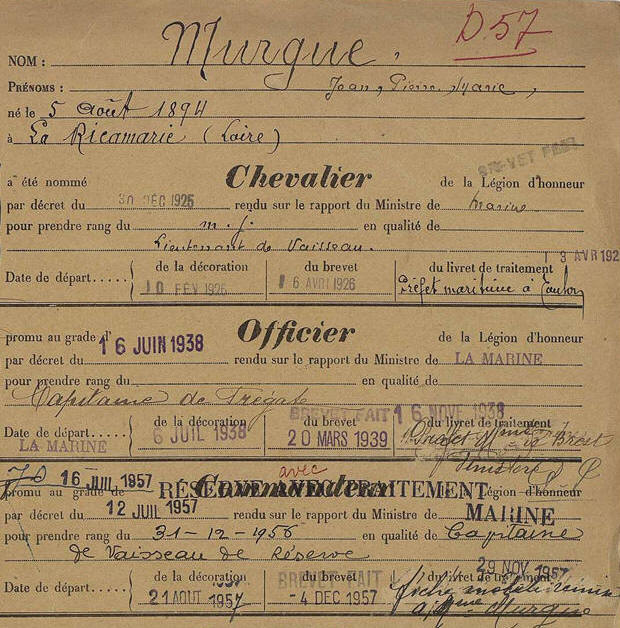 D 57
NOM : Murgue,
PRÉNOMS : Jean, Pierre, Marie,
né le 5 Août 1894
à La Ricamarie (Loire)
BREVET FAIT
a été nommé Chevalier de la Légion d'honneur
par décret du 30 DÉC 1925 rendu sur le rapport du Ministre de Marine
pour prendre rang du m. j. en qualité de
Lieutenant de Vaisseau.
13 AVR 192
Date de départ..... de la décoration du brevet du livret de traitement
10 FÉV 1926 16 AVRI 1926 Préfet maritime à Toulon
promu au grade d' Officier de la Légion d'honneur
16 JUIN 1938
par décret du rendu sur le rapport du Ministre de LA MARINE
pour prendre rang du en qualité de
Capitaine de Frégate
BREVET FAIT 16 NOV 1938
Date de départ..... de la décoration du brevet du livret de traitement
LA MARINE 6 JUIL 1938 20 MARS 1939 Préfet Brest
avec
16 JUIL 1957 RÉSERVE AVEC TRAITEMENT
promu au grade de Commandeur Légion d'honneur
par décret du 12 JUIL 1957 rendu sur le rapport du Ministre de MARINE
pour prendre rang du 31-12-1956 en qualité de Capitaine
de Vaisseau de Réserve
29 NOV 1957
Date de départ..... de la décoration du brevet du livret de traitement
BREVET FAIT
21 AOUT 1957 -4 DEC 1957 fiche
à Mme Murgue